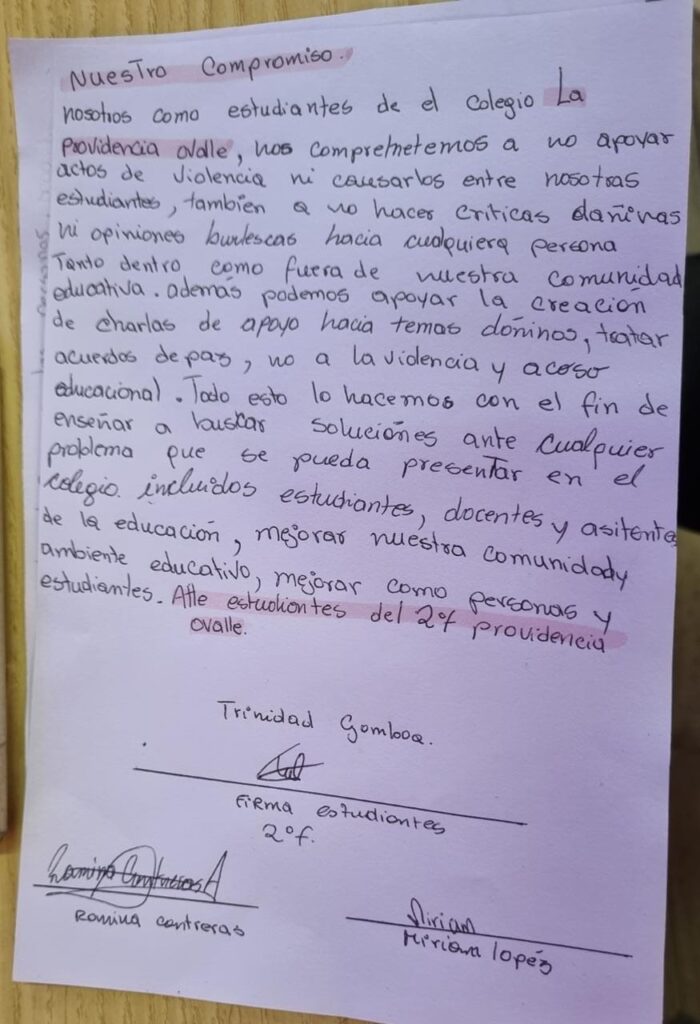 Nuestro Compromiso.
nosotros como estudiantes de el colegio La
Providencia ovalle, nos comprehetemos a no apoyar
actos de violencia ni causarlos entre nosotras
estudiantes, tambien a no hacer criticas dañinas
ni opiniones burlescas hacia cualquiera persona
Tanto dentro como fuera de nuestra comunidad
educativa. además podemos apoyar la creación
de charlas de apoyo hacia temas doninos, tratar
acuerdos de paz, no a la violencia y acoso
educacional. Todo esto lo hacemos con el fin de
enseñar a buscar soluciónes ante cualquier
problema que se pueda presentar en el
colegio. incluidos estudiantes, docentes y asitente
de la educación, mejorar nuestra comunidad y
ambiente educativo, mejorar como personas y
estudiantes. Atte estudiantes del 2°f providencia
ovalle.
Trinidad Gamboa.
FIRMA estudiantes
2°f.
Romina Contreras A
Romina contreras
Miriam
Miriam lopéz